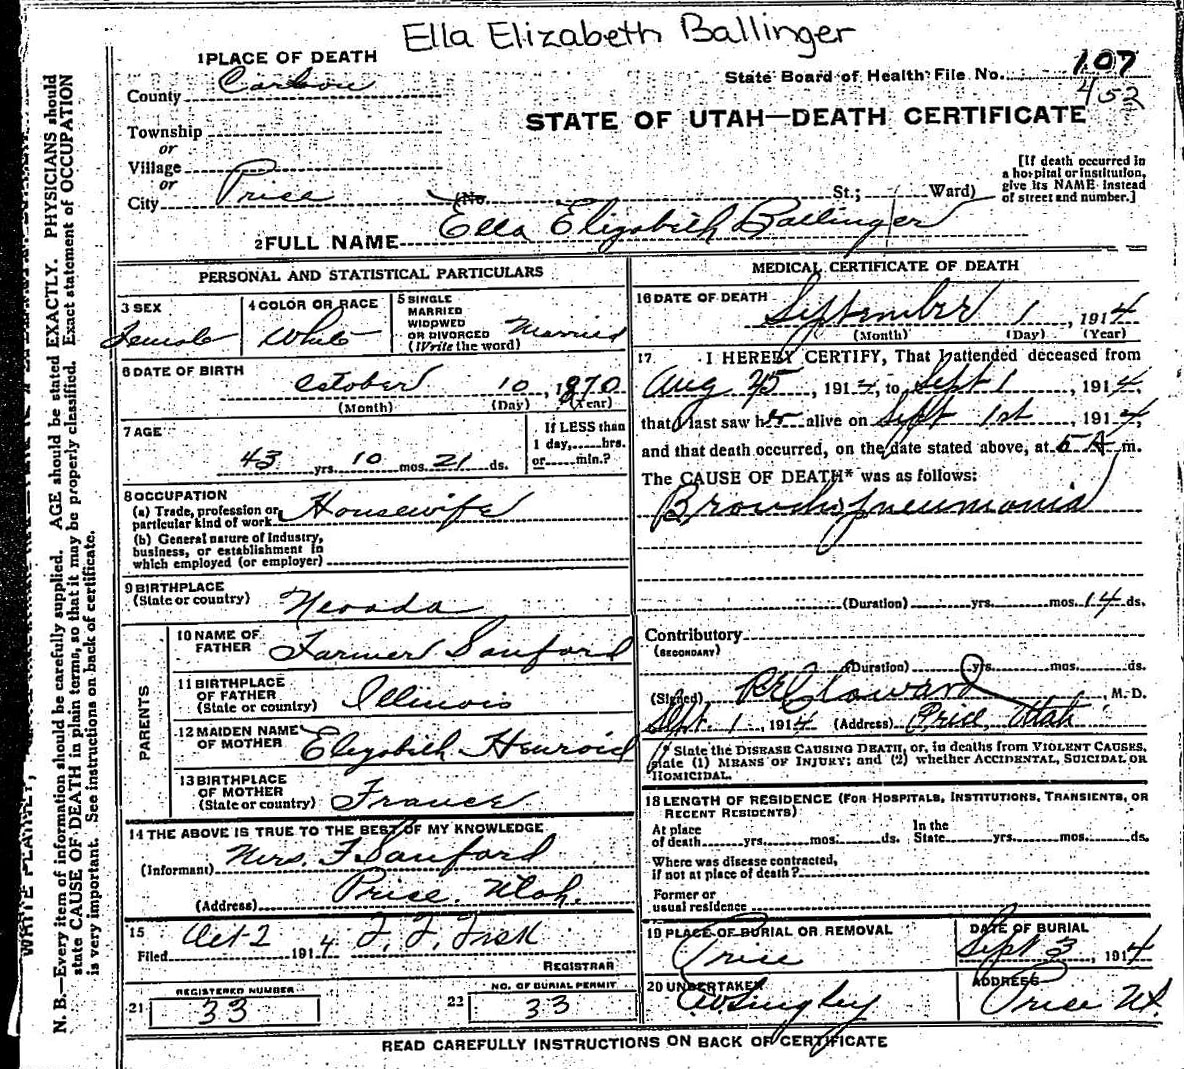 Ella Elizabeth Ballinger
1 PLACE OF DEATH
County Carbon
Township
or
Village
or
City Price (No. St.; Ward)
State Board of Health File No. 107
452
STATE OF UTAH—DEATH CERTIFICATE
[If death occurred in
a hospital or institution,
give its NAME instead
of street and number.]
2 FULL NAME Ella Elizabeth Ballinger
PERSONAL AND STATISTICAL PARTICULARS
3 SEX
Female
4 COLOR OR RACE
White
5 SINGLE
MARRIED
WIDOWED
OR DIVORCED
(Write the word)
Married
6 DATE OF BIRTH
October 10, 1870
(Month) (Day) (Year)
7 AGE
43 yrs. 10 mos. 21 ds.
If LESS than
1 day, hrs.
or min.?
8 OCCUPATION
(a) Trade, profession or
particular kind of work Housewife
(b) General nature of Industry,
business, or establishment in
which employed (or employer)
9 BIRTHPLACE
(State or country) Nevada
PARENTS
10 NAME OF
FATHER Farmer Sanford
11 BIRTHPLACE
OF FATHER
(State or country) Illinois
12 MAIDEN NAME
OF MOTHER Elizabeth Henroid
13 BIRTHPLACE
OF MOTHER
(State or country) France
14 THE ABOVE IS TRUE TO THE BEST OF MY KNOWLEDGE
(Informant) Mrs. F. Sanford
(Address) Price, Utah.
15
Filed Oct 2 1914 REGISTRAR
21 REGISTERED NUMBER
33
22 NO. OF BURIAL PERMIT
33
MEDICAL CERTIFICATE OF DEATH
16 DATE OF DEATH
September 1, 1914
(Month) (Day) (Year)
17. I HEREBY CERTIFY, That I attended deceased from
Aug 25, 1914, to Sept 1, 1914,
that I last saw her alive on Sept 1st, 1914,
and that death occurred, on the date stated above, at 5 A m.
The CAUSE OF DEATH* was as follows:
Bronchopneumonia
(Duration) yrs. mos. 14 ds.
Contributory
(SECONDARY)
(Duration) yrs. mos. ds.
(Signed) , M. D.
Sept. 1, 1914 (Address) Price, Utah
* State the DISEASE CAUSING DEATH, or, in deaths from VIOLENT CAUSES,
state (1) MEANS OF INJURY; and (2) whether ACCIDENTAL, SUICIDAL OR
HOMICIDAL.
18 LENGTH OF RESIDENCE (FOR HOSPITALS, INSTITUTIONS, TRANSIENTS, OR
RECENT RESIDENTS)
At place
of death yrs. mos. ds.
In the
State yrs. mos. ds.
Where was disease contracted,
if not at place of death?
Former or
usual residence
19 PLACE OF BURIAL OR REMOVAL
Price
DATE OF BURIAL
Sept 3, 1914
20 UNDERTAKER
ADDRESS
Price Ut.
READ CAREFULLY INSTRUCTIONS ON BACK OF CERTIFICATE
N. B.—Every item of information should be carefully supplied. AGE should be stated EXACTLY. PHYSICIANS should
state CAUSE OF DEATH in plain terms, so that it may be properly classified. Exact statement of OCCUPATION
is very important. See instructions on back of certificate.